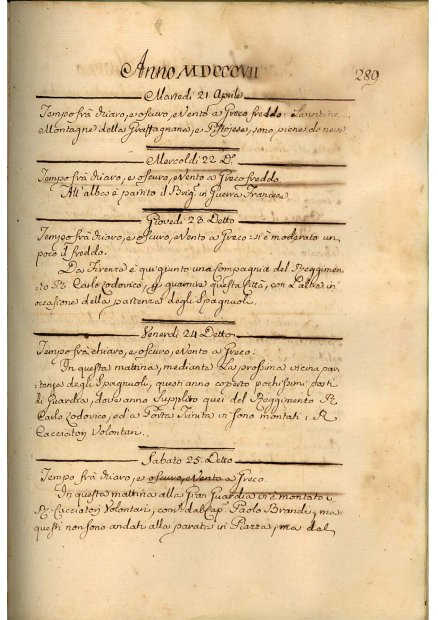 Anno MDCCCVII
289
Martedi 21. Aprile
Tempo frà chiaro, e oscuro, e Vento a Greco freddo: Le vicine
Montagne della Graffagnana, e Pistojese, sono piene di neve
Mercoldi 22 D.º
Tempo frà chiaro, e oscuro, e Vento a Greco freddo.
All'alba è partito il Brig.º in Guerra Francese
Giovedi 23. Detto
Tempo frà chiaro, e oscuro, e Vento a Greco: si è moderato un
poco il freddo.
Da Firenze è qui giunto una Compagnia del Reggimen-
to R. Carlo Lodovico, p. guarnire questa Città, con l'altra in
occasione della partenza degli Spagnuoli.
Venerdi 24. Detto
Tempo frà chiaro, e oscuro, e Vento a Greco.
In questa mattina, mediante la prossima vicina par-
tenza degli Spagnuoli, questi anno coperto pochissimi posti
di Guardia, dove anno supplito quei del Reggimento R.
Carlo Lodovico, ed a Porta in sono montati i R.
Cacciatori Volontari.
Sabato 25. Detto
Tempo frà chiaro, e oscuro, e Vento a Greco.
In questa mattina alla Gran Guardia vi è montato i
R. Cacciatori Volontari, com.ti dal Cap. Paolo Brandi, ma
questi non sono andati alla parata in Piazza, ma dal